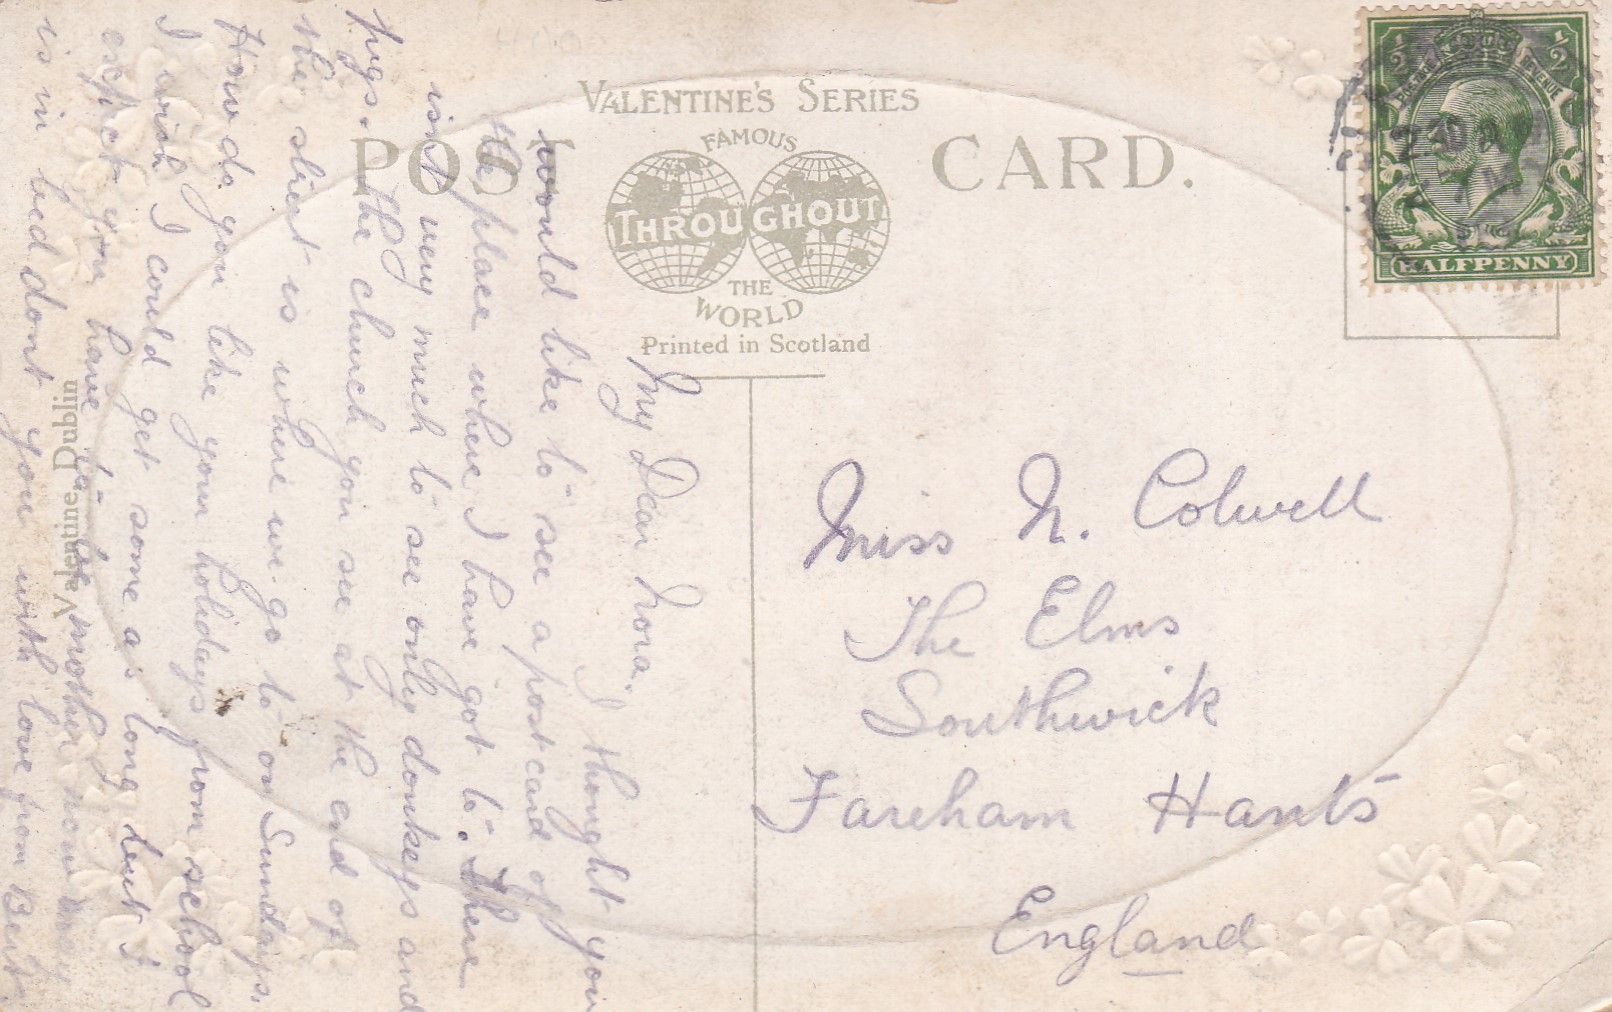 VALENTINE'S SERIES
FAMOUS
POST CARD.
THROUGHOUT
THE
WORLD
Printed in Scotland
Valentine Dublin
HALFPENNY
My Dear Nora.
I thought you
would like to see a postcard of
the place where I have got to. There
isnt very much to see only donkeys and
pigs. the church you see at the end of
the street is where we go to on Sundays.
How do you like your holidays from school
I wish I could get some as long but I
expect you have to be mother now
is in bed dont you with love from Bert.
Miss N. Colwell
The Elms
Southwick
Fareham Hants
England